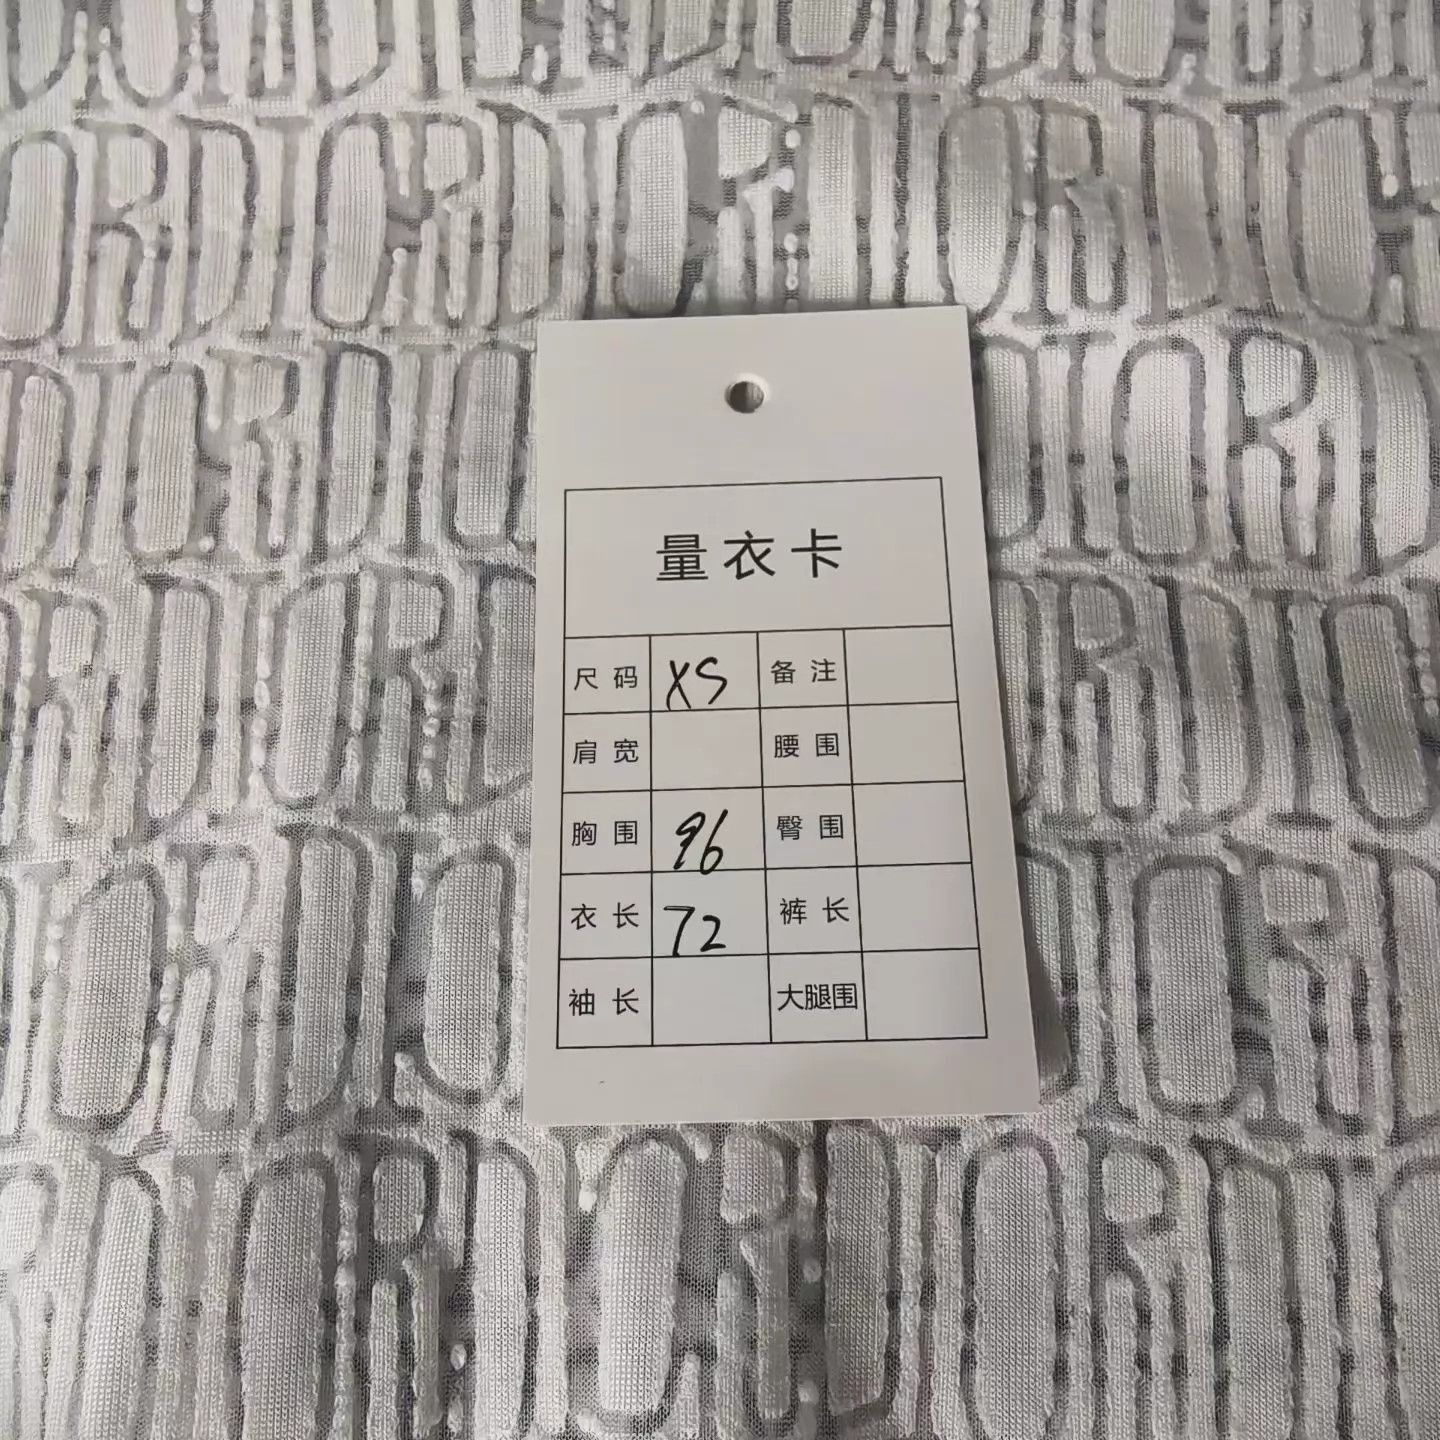 量衣卡
尺码 XS 备注
肩宽 腰围
胸围 96 臀围
衣长 72 裤长
袖长 大腿围